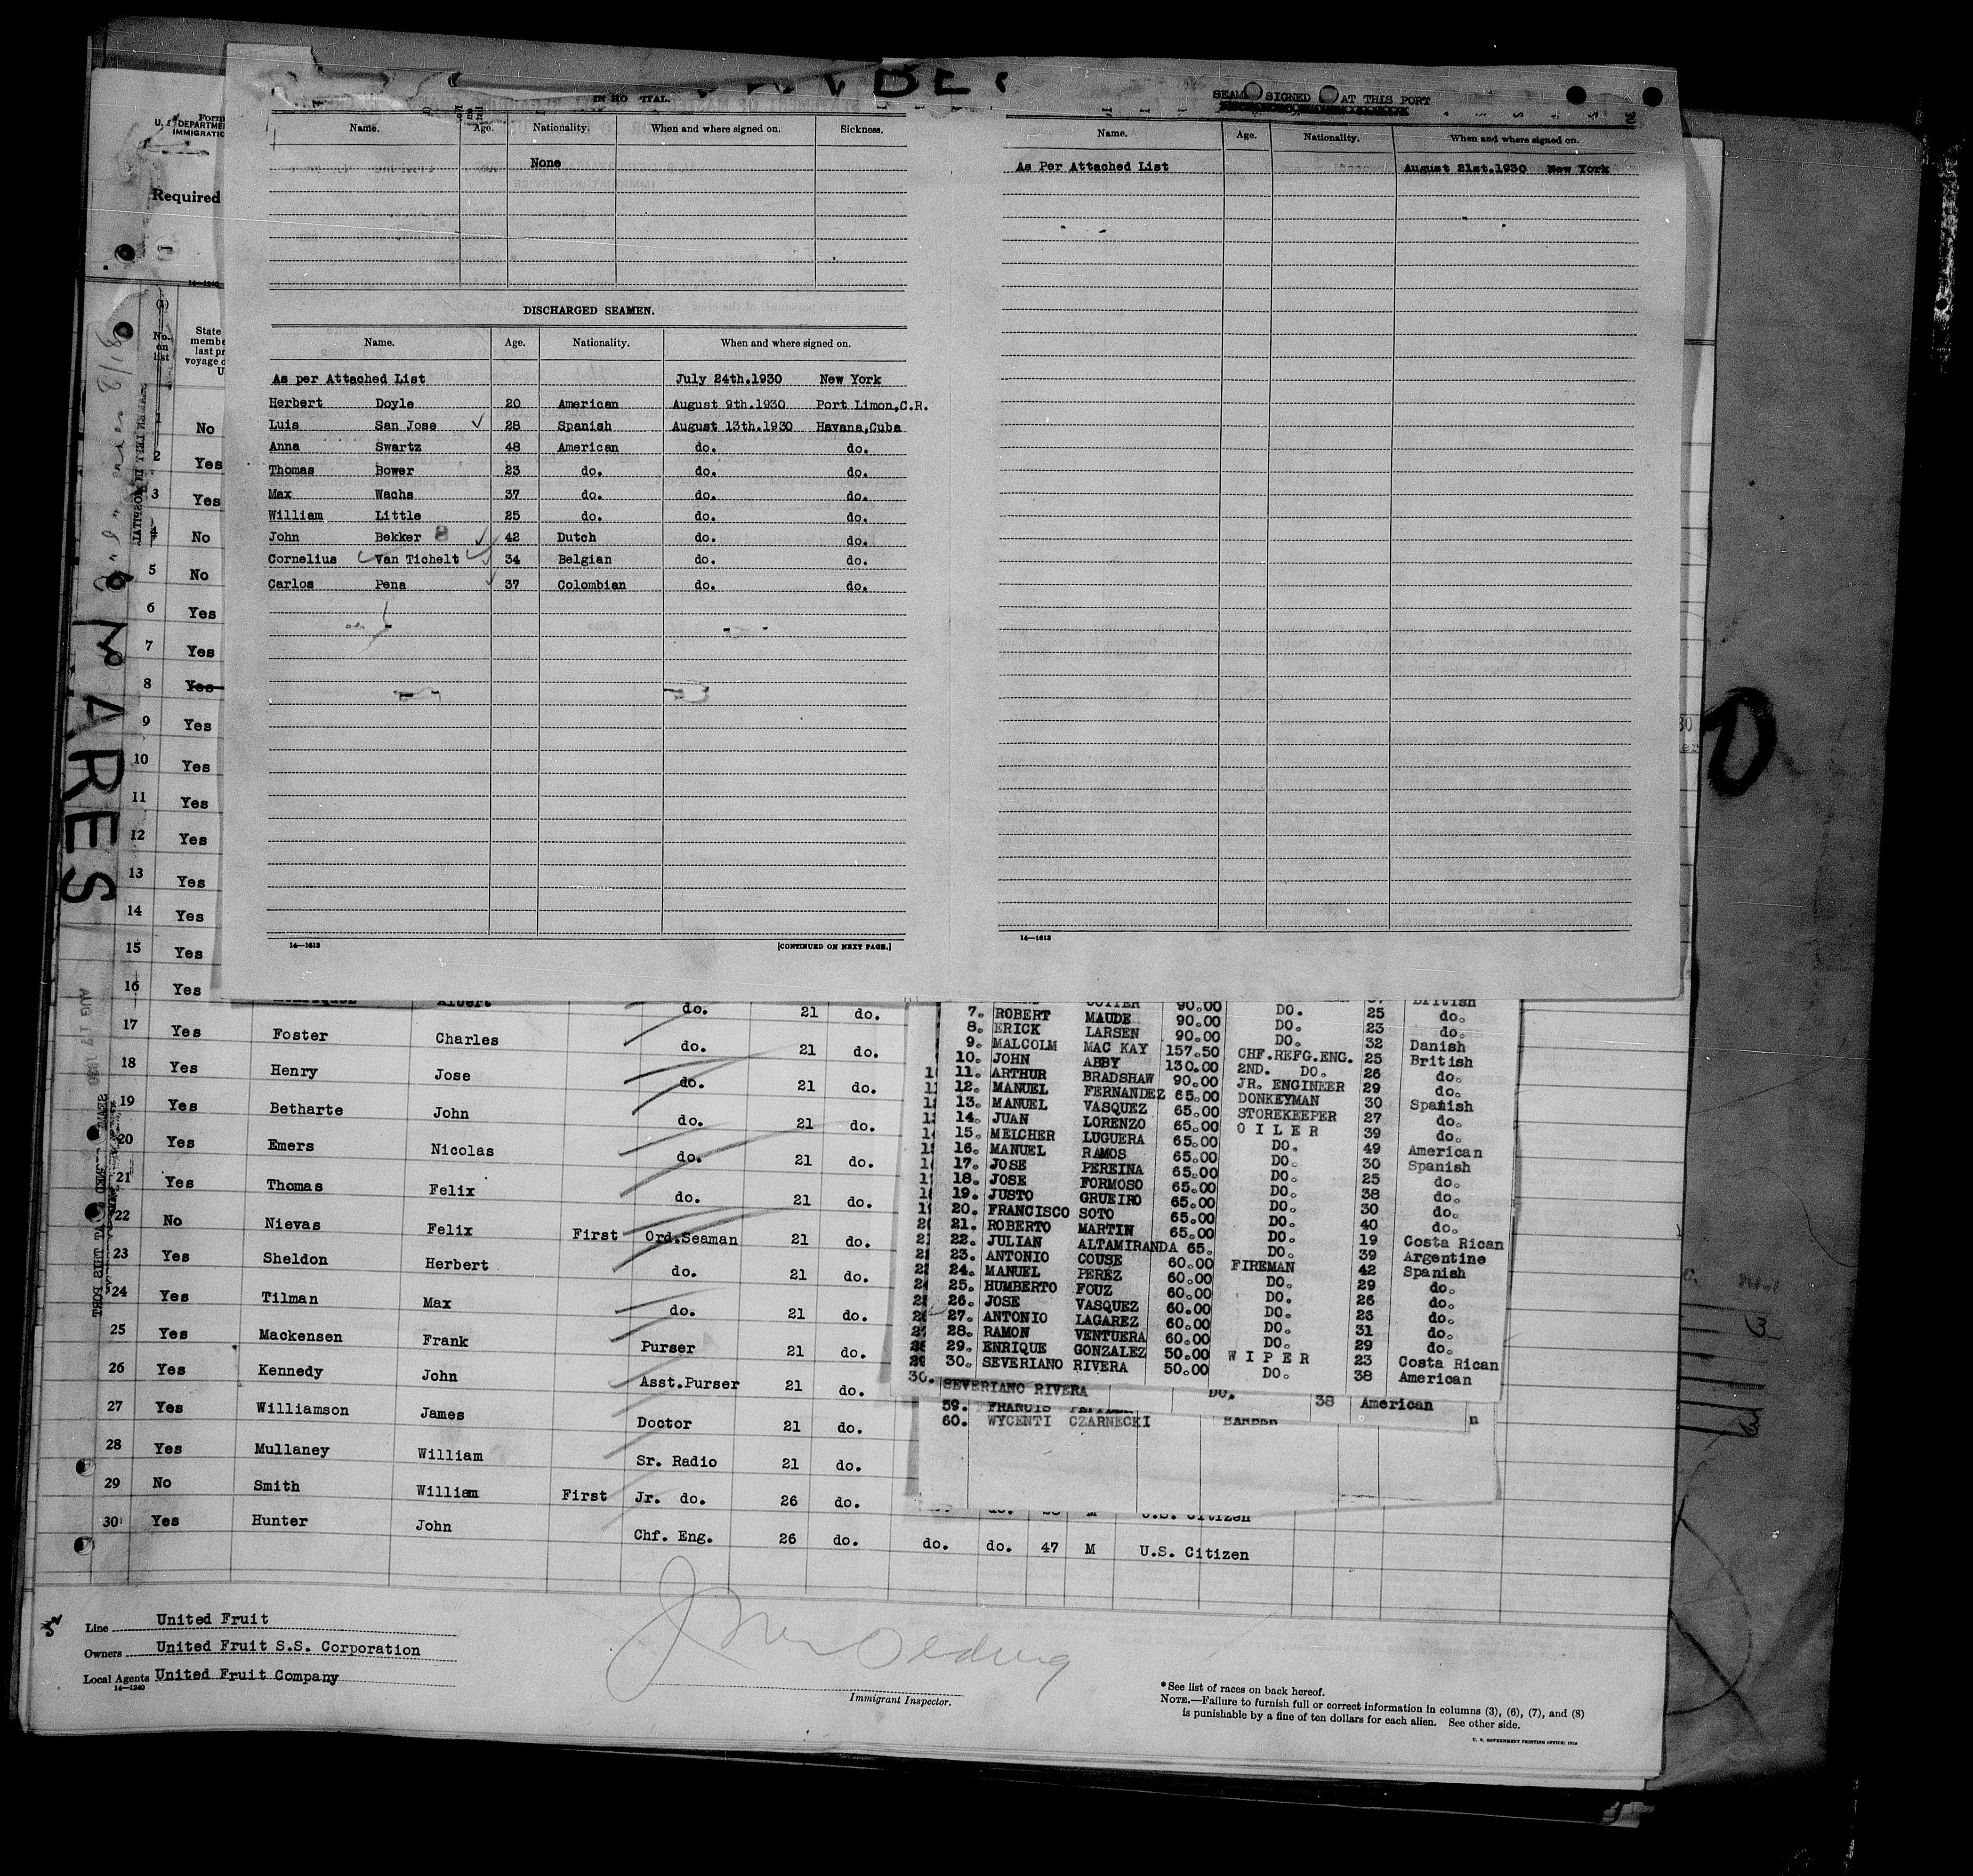 IN HO ITAL.
Name. Age. Nationality. When and where signed on. Sickness.
None
DISCHARGED SEAMEN.
Name. Age. Nationality. When and where signed on.
As per Attached List July 24th.1930 New York
Herbert Doyle 20 American August 9th.1930 Port Limon,C.R.
Luis San Jose 28 Spanish August 13th.1930 Havana,Cuba
Anna Swartz 48 American do. do.
Thomas Bower 23 do. do. do.
Max Wachs 37 do. do. do.
William Little 25 do. do. do.
John Bekker 42 Dutch do. do.
Cornelius Van Tichelt 34 Belgian do. do.
Carlos Pena 37 Colombian do. do.
14—1613 [CONTINUED ON NEXT PAGE.]
SEAM SIGNED AT THIS PORT
Name. Age. Nationality. When and where signed on.
As Per Attached List August 21st.1930 New York
14—1613
Form
U. S. DEPARTME
IMMIGRATIO
Required
14—1240
No. on list
State
membe
last pr
voyage o
U
No
2 Yes
3 Yes
4 No
5 No
6 Yes
7 Yes
8 Yes
9 Yes
10 Yes
11 Yes
12 Yes
13 Yes
14 Yes
15 Yes
16 Yes Albert do. 21 do.
17 Yes Foster Charles do. 21 do.
18 Yes Henry Jose do. 21 do.
19 Yes Betharte John do. 21 do.
20 Yes Emers Nicolas do. 21 do.
21 Yes Thomas Felix do. 21 do.
22 No Nievas Felix First Ord.Seaman 21 do.
23 Yes Sheldon Herbert do. 21 do.
24 Yes Tilman Max do. 21 do.
25 Yes Mackensen Frank Purser 21 do.
26 Yes Kennedy John Asst.Purser 21 do.
27 Yes Williamson James Doctor 21 do.
28 Yes Mullaney William Sr. Radio 21 do.
29 No Smith William First Jr. do. 26 do. U.S. Citizen
30 Yes Hunter John Chf. Eng. 26 do. do. do. 47 M U.S. Citizen
ARES
90.00 British
7. ROBERT MAUDE 90.00 DO. 25 do.
8. ERICK LARSEN 90.00 DO. 23 do.
9. MALCOLM MAC KAY 157.50 DO. 32 Danish
10. JOHN ABBY 130.00 CHF.REFG.ENG. 25 British
11. ARTHUR BRADSHAW 90.00 2ND. DO. 26 do.
12. MANUEL FERNANDEZ 65.00 JR. ENGINEER 29 do.
13. MANUEL VASQUEZ 65.00 DONKEYMAN 30 Spanish
14. JUAN LORENZO 65.00 STOREKEEPER 27 do.
15. MELCHER LUGUERA 65.00 OILER 39 do.
16. MANUEL RAMOS 65.00 DO. 49 American
17. JOSE PEREINA 65.00 DO. 30 Spanish
18. JOSE FORMOSO 65.00 DO. 25 do.
19. JUSTO GRUEIRO 65.00 DO. 38 do.
20. FRANCISCO SOTO 65.00 DO. 30 do.
21. ROBERTO MARTIN 65.00 DO. 40 do.
22. JULIAN ALTAMIRANDA 65. DO. 19 Costa Rican
23. ANTONIO COUSE 60.00 DO. 39 Argentine
24. MANUEL PEREZ 60.00 FIREMAN 42 Spanish
25. HUMBERTO FOUZ 60.00 DO. 29 do.
26. JOSE VASQUEZ 60.00 DO. 26 do.
27. ANTONIO LAGAREZ 60.00 DO. 23 do.
28. RAMON VENTUERA 60.00 DO. 31 do.
29. ENRIQUE GONZALEZ 50.00 DO. 29 do.
30. SEVERIANO RIVERA 50.00 WIPER 23 Costa Rican
DO. 38 American
30. SEVERIANO RIVERA DO. 38 American
59. FRANCIS
60. WYCENTI CZARNECKI BARBER
Line United Fruit
Owners United Fruit S.S. Corporation
Local Agents United Fruit Company
14—1240
Immigrant Inspector.
*See list of races on back hereof.
NOTE.—Failure to furnish full or correct information in columns (3), (6), (7), and (8)
is punishable by a fine of ten dollars for each alien. See other side.